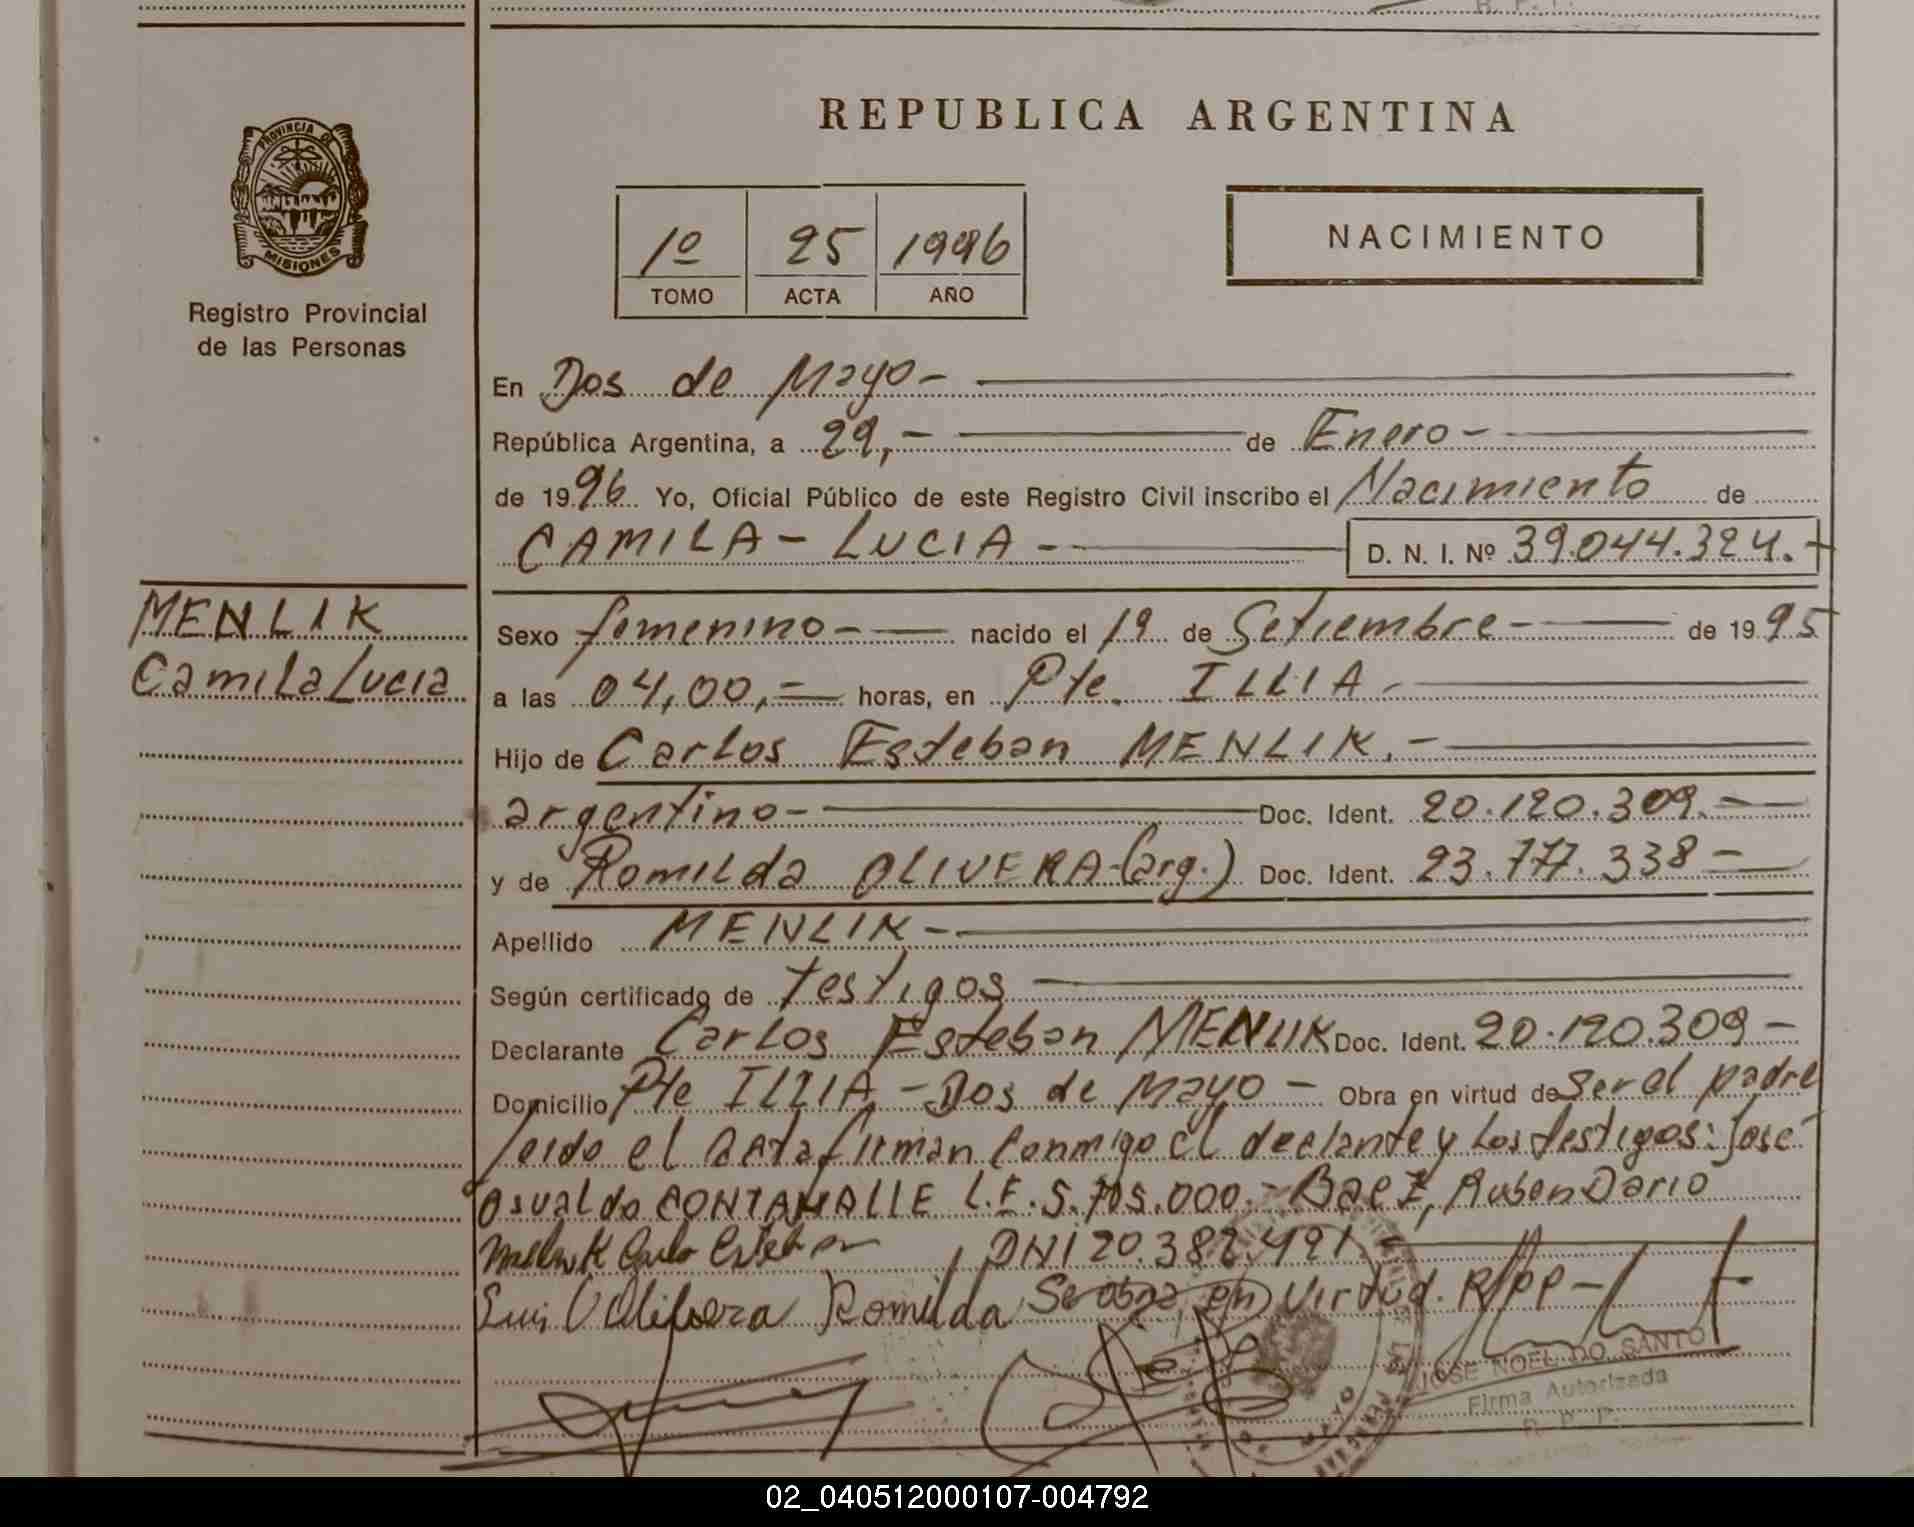 REPUBLICA ARGENTINA
PROVINCIA DE
MISIONES
Registro Provincial
de las Personas
1º 25 1996
TOMO ACTA AÑO
NACIMIENTO
En Dos de Mayo-
República Argentina, a 29,- de Enero-
de 1996 Yo, Oficial Público de este Registro Civil inscribo el Nacimiento de
CAMILA - LUCIA - D. N. I. Nº 39.044.324.-
MENLIK
Camila Lucia
Sexo femenino- nacido el 19 de Setiembre- de 1995
a las 04,00,- horas, en Pte. ILLIA-
Hijo de Carlos Esteban MENLIK.-
argentino- Doc. Ident. 20.120.309.-
y de Romilda OLIVERA-(arg.) Doc. Ident. 23.777.338-
Apellido MENLIK-
Según certificado de testigos
Declarante Carlos Esteban MENLIK Doc. Ident. 20.120.309-
Domicilio Pte ILLIA - Dos de Mayo - Obra en virtud de Ser el padre
leido el acta firman conmigo el declante y los testigos: José
Osvaldo L.E. 5.705.000.- Baez, Ruben Dario
Esteban DNI 20.382.491.-
Luis Romilda Se obra en Virtud. R/PP-
JOSE NOEL DO SANTO
Firma Autorizada
R. P. P.
02_040512000107-004792